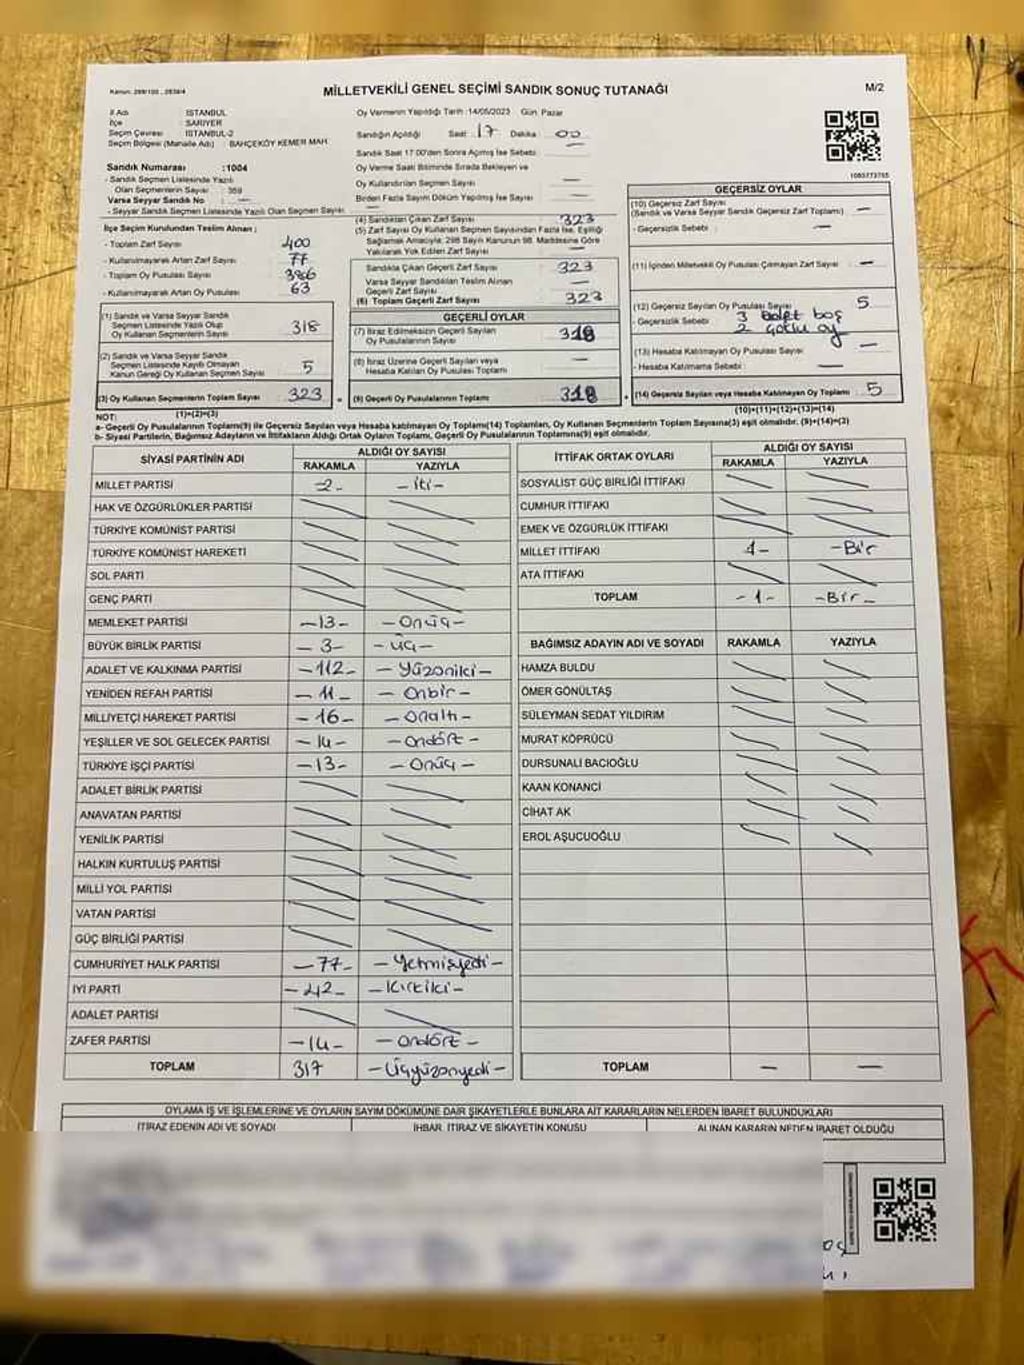 Kanun: 298/100 , 2839/4
MİLLETVEKİLİ GENEL SEÇİMİ SANDIK SONUÇ TUTANAĞI
M/2
İl Adı : İSTANBUL
İlçe : SARIYER
Seçim Çevresi : İSTANBUL-2
Seçim Bölgesi (Mahalle Adı) : BAHÇEKÖY KEMER MAH
Sandık Numarası :1004
- Sandık Seçmen Listesinde Yazılı
Olan Seçmenlerin Sayısı : 359
Varsa Seyyar Sandık No : —
- Seyyar Sandık Seçmen Listesinde Yazılı Olan Seçmen Sayısı: —
İlçe Seçim Kurulundan Teslim Alınan ;
- Toplam Zarf Sayısı 400
- Kullanılmayarak Artan Zarf Sayısı 77
- Toplam Oy Pusulası Sayısı 386
- Kullanılmayarak Artan Oy Pusulası 63
(1) Sandık ve Varsa Seyyar Sandık
Seçmen Listesinde Yazılı Olup
Oy Kullanan Seçmenlerin Sayısı 318
(2) Sandık ve Varsa Seyyar Sandık
Seçmen Listesinde Kayıtlı Olmayan
Kanun Gereği Oy Kullanan Seçmen Sayısı 5
(3) Oy Kullanan Seçmenlerin Toplam Sayısı 323
(1)+(2)=(3)
Oy Vermenin Yapıldığı Tarih :14/05/2023 Gün: Pazar
Sandığın Açıldığı Saat :17 Dakika :00
Sandık Saat 17:00'den Sonra Açılmış İse Sebebi: —
Oy Verme Saati Bitiminde Sırada Bekleyen ve
Oy Kullandırılan Seçmen Sayısı —
Birden Fazla Sayım Döküm Yapılmış İse Sayısı —
(4) Sandıktan Çıkan Zarf Sayısı 323
(5) Zarf Sayısı Oy Kullanan Seçmen Sayısından Fazla İse, Eşitliği
Sağlamak Amacıyla; 298 Sayılı Kanunun 98. Maddesine Göre
Yakılarak Yok Edilen Zarf Sayısı —
Sandıkta Çıkan Geçerli Zarf Sayısı 323
Varsa Seyyar Sandıktan Teslim Alınan
Geçerli Zarf Sayısı —
(6) Toplam Geçerli Zarf Sayısı 323
GEÇERLİ OYLAR
(7) İtiraz Edilmeksizin Geçerli Sayılan
Oy Pusulasının Sayısı 318
(8) İtiraz Üzerine Geçerli Sayılan veya
Hesaba Katılan Oy Pusulası Toplamı —
(9) Geçerli Oy Pusulalarının Toplamı 318
1093773755
GEÇERSİZ OYLAR
(10) Geçersiz Zarf Sayısı
(Sandık ve Varsa Seyyar Sandık Geçersiz Zarf Toplamı) —
- Geçersizlik Sebebi : —
(11) İçinden Milletvekili Oy Pusulası Çıkmayan Zarf Sayısı —
(12) Geçersiz Sayılan Oy Pusulası Sayısı 5
- Geçersizlik Sebebi : 3 adet boş
2 çoklu oy
(13) Hesaba Katılmayan Oy Pusulası Sayısı —
- Hesaba Katılmama Sebebi : —
(14) Geçersiz Sayılan veya Hesaba Katılmayan Oy Toplamı 5
(10)+(11)+(12)+(13)=(14)
NOT:
a- Geçerli Oy Pusulasının Toplamı(9) ile Geçersiz Sayılan veya Hesaba katılmayan Oy Toplamı(14) Toplamları, Oy Kullanan Seçmenlerin Toplam Sayısına(3) eşit olmalıdır. (9)+(14)=(3)
b- Siyasi Partilerin, Bağımsız Adayların ve İttifakların Aldığı Ortak Oyların Toplamı, Geçerli Oy Pusulalarının Toplamına(9) eşit olmalıdır.
SİYASİ PARTİNİN ADI
ALDIĞI OY SAYISI
RAKAMLA YAZIYLA
MİLLET PARTİSİ -2- -iki-
HAK VE ÖZGÜRLÜKLER PARTİSİ
TÜRKİYE KOMÜNİST PARTİSİ
TÜRKİYE KOMÜNİST HAREKETİ
SOL PARTİ
GENÇ PARTİ
MEMLEKET PARTİSİ -13- -Onüç-
BÜYÜK BİRLİK PARTİSİ -3- -üç-
ADALET VE KALKINMA PARTİSİ -112- -Yüzoniki-
YENİDEN REFAH PARTİSİ -11- -Onbir-
MİLLİYETÇİ HAREKET PARTİSİ -16- -Onaltı-
YEŞİLLER VE SOL GELECEK PARTİSİ -14- -Ondört-
TÜRKİYE İŞÇİ PARTİSİ -13- -Onüç-
ADALET BİRLİK PARTİSİ
ANAVATAN PARTİSİ
YENİLİK PARTİSİ
HALKIN KURTULUŞ PARTİSİ
MİLLİ YOL PARTİSİ
VATAN PARTİSİ
GÜÇ BİRLİĞİ PARTİSİ
CUMHURİYET HALK PARTİSİ -77- -Yetmişyedi-
İYİ PARTİ -42- -Kırkiki-
ADALET PARTİSİ
ZAFER PARTİSİ -14- -Ondört-
TOPLAM 317 -Üçyüzonyedi-
İTTİFAK ORTAK OYLARI
ALDIĞI OY SAYISI
RAKAMLA YAZIYLA
SOSYALİST GÜÇ BİRLİĞİ İTTİFAKI
CUMHUR İTTİFAKI
EMEK VE ÖZGÜRLÜK İTTİFAKI
MİLLET İTTİFAKI 1- -Bir
ATA İTTİFAKI
TOPLAM -1- -Bir-
BAĞIMSIZ ADAYIN ADI VE SOYADI RAKAMLA YAZIYLA
HAMZA BULDU
ÖMER GÖNÜLTAŞ
SÜLEYMAN SEDAT YILDIRIM
MURAT KÖPRÜCÜ
DURSUNALİ BACIOĞLU
KAAN KONANCI
CİHAT AK
EROL AŞUCUOĞLU
TOPLAM — —
OYLAMA İŞ VE İŞLEMLERİNE VE OYLARIN SAYIM DÖKÜMÜNE DAİR ŞİKAYETLERLE BUNLARA AİT KARARLARIN NELERDEN İBARET BULUNDUKLARI
İTİRAZ EDENİN ADI VE SOYADI İHBAR, İTİRAZ VE ŞİKAYETİN KONUSU ALINAN KARARIN NEDEN İBARET OLDUĞU